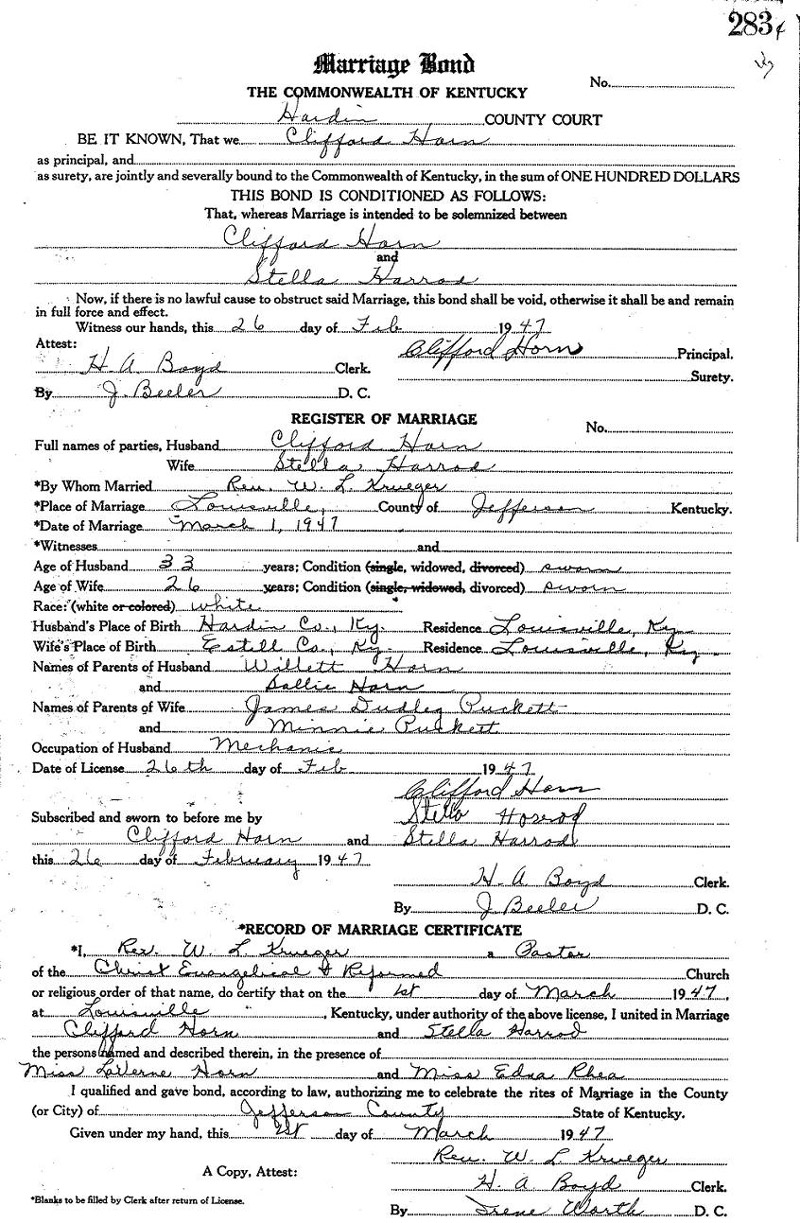 283
Marriage Bond
No.
THE COMMONWEALTH OF KENTUCKY
Hardin COUNTY COURT
BE IT KNOWN, That we Clifford Horn
as principal, and
as surety, are jointly and severally bound to the Commonwealth of Kentucky, in the sum of ONE HUNDRED DOLLARS
THIS BOND IS CONDITIONED AS FOLLOWS:
That, whereas Marriage is intended to be solemnized between
Clifford Horn
and
Stella Harrod
Now, if there is no lawful cause to obstruct said Marriage, this bond shall be void, otherwise it shall be and remain
in full force and effect.
Witness our hands, this 26 day of Feb 1947
Attest:
Clifford Horn Principal.
H A Boyd Clerk.
Surety.
By J. Beeler D. C.
REGISTER OF MARRIAGE
No.
Full names of parties, Husband Clifford Horn
Wife Stella Harrod
*By Whom Married Rev. W. L. Krueger
*Place of Marriage Louisville, County of Jefferson Kentucky.
*Date of Marriage March 1, 1947
*Witnesses and
Age of Husband 33 years; Condition (single, widowed, divorced) sworn
Age of Wife 26 years; Condition (single, widowed, divorced) sworn
Race: (white or colored) white
Husband's Place of Birth Hardin Co., Ky. Residence Louisville, Ky.
Wife's Place of Birth Estill Co., Ky. Residence Louisville, Ky.
Names of Parents of Husband Willett Horn
and Sallie Horn
Names of Parents of Wife James Dudley Puckett
and Minnie Puckett
Occupation of Husband Mechanic
Date of License 26th day of Feb 1947
Clifford Horn
Stella
Subscribed and sworn to before me by
Clifford Horn and Stella Harrod
this 26 day of February 1947
H. A Boyd Clerk.
By J Beeler D. C.
*RECORD OF MARRIAGE CERTIFICATE
*I, Rev. W L Krueger a Pastor
of the Christ Evangelical & Reformed Church
or religious order of that name, do certify that on the 1st day of March 1947,
at Louisville, Kentucky, under authority of the above license, I united in Marriage
Clifford Horn and Stella Harrod
the persons named and described therein, in the presence of
Miss LaVerne Horn and Miss Edna Rhea
I qualified and gave bond, according to law, authorizing me to celebrate the rites of Marriage in the County
(or City) of Jefferson County State of Kentucky.
Given under my hand, this 1st day of March 1947
Rev. W. L Krueger
A Copy, Attest:
H. A Boyd Clerk.
*Blanks to be filled by Clerk after return of License.
By Irene Warth D. C.